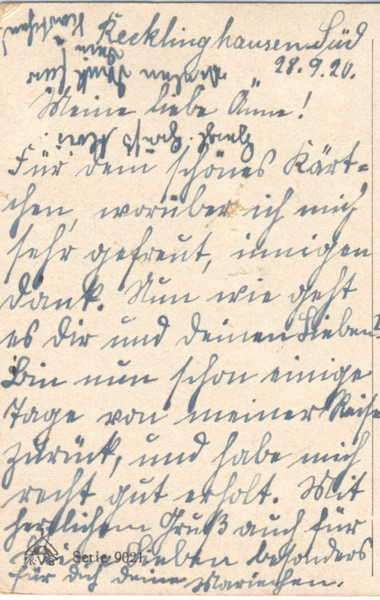 Recklinghausen Süd
28.9.20.
Meine liebe Änne!
Für dein schönes Kärt-
chen, worüber ich mich
sehr gefreut, innigen
Dank. Nun wie geht
es dir und deinen Lieben?
Bin nun schon einige
Tage von meiner Reise
zurück, und habe mich
recht gut erholt. Mit
herzlichem Gruß auch für
Lieben besonders
für dich deine Mariechen.
Serie 9021